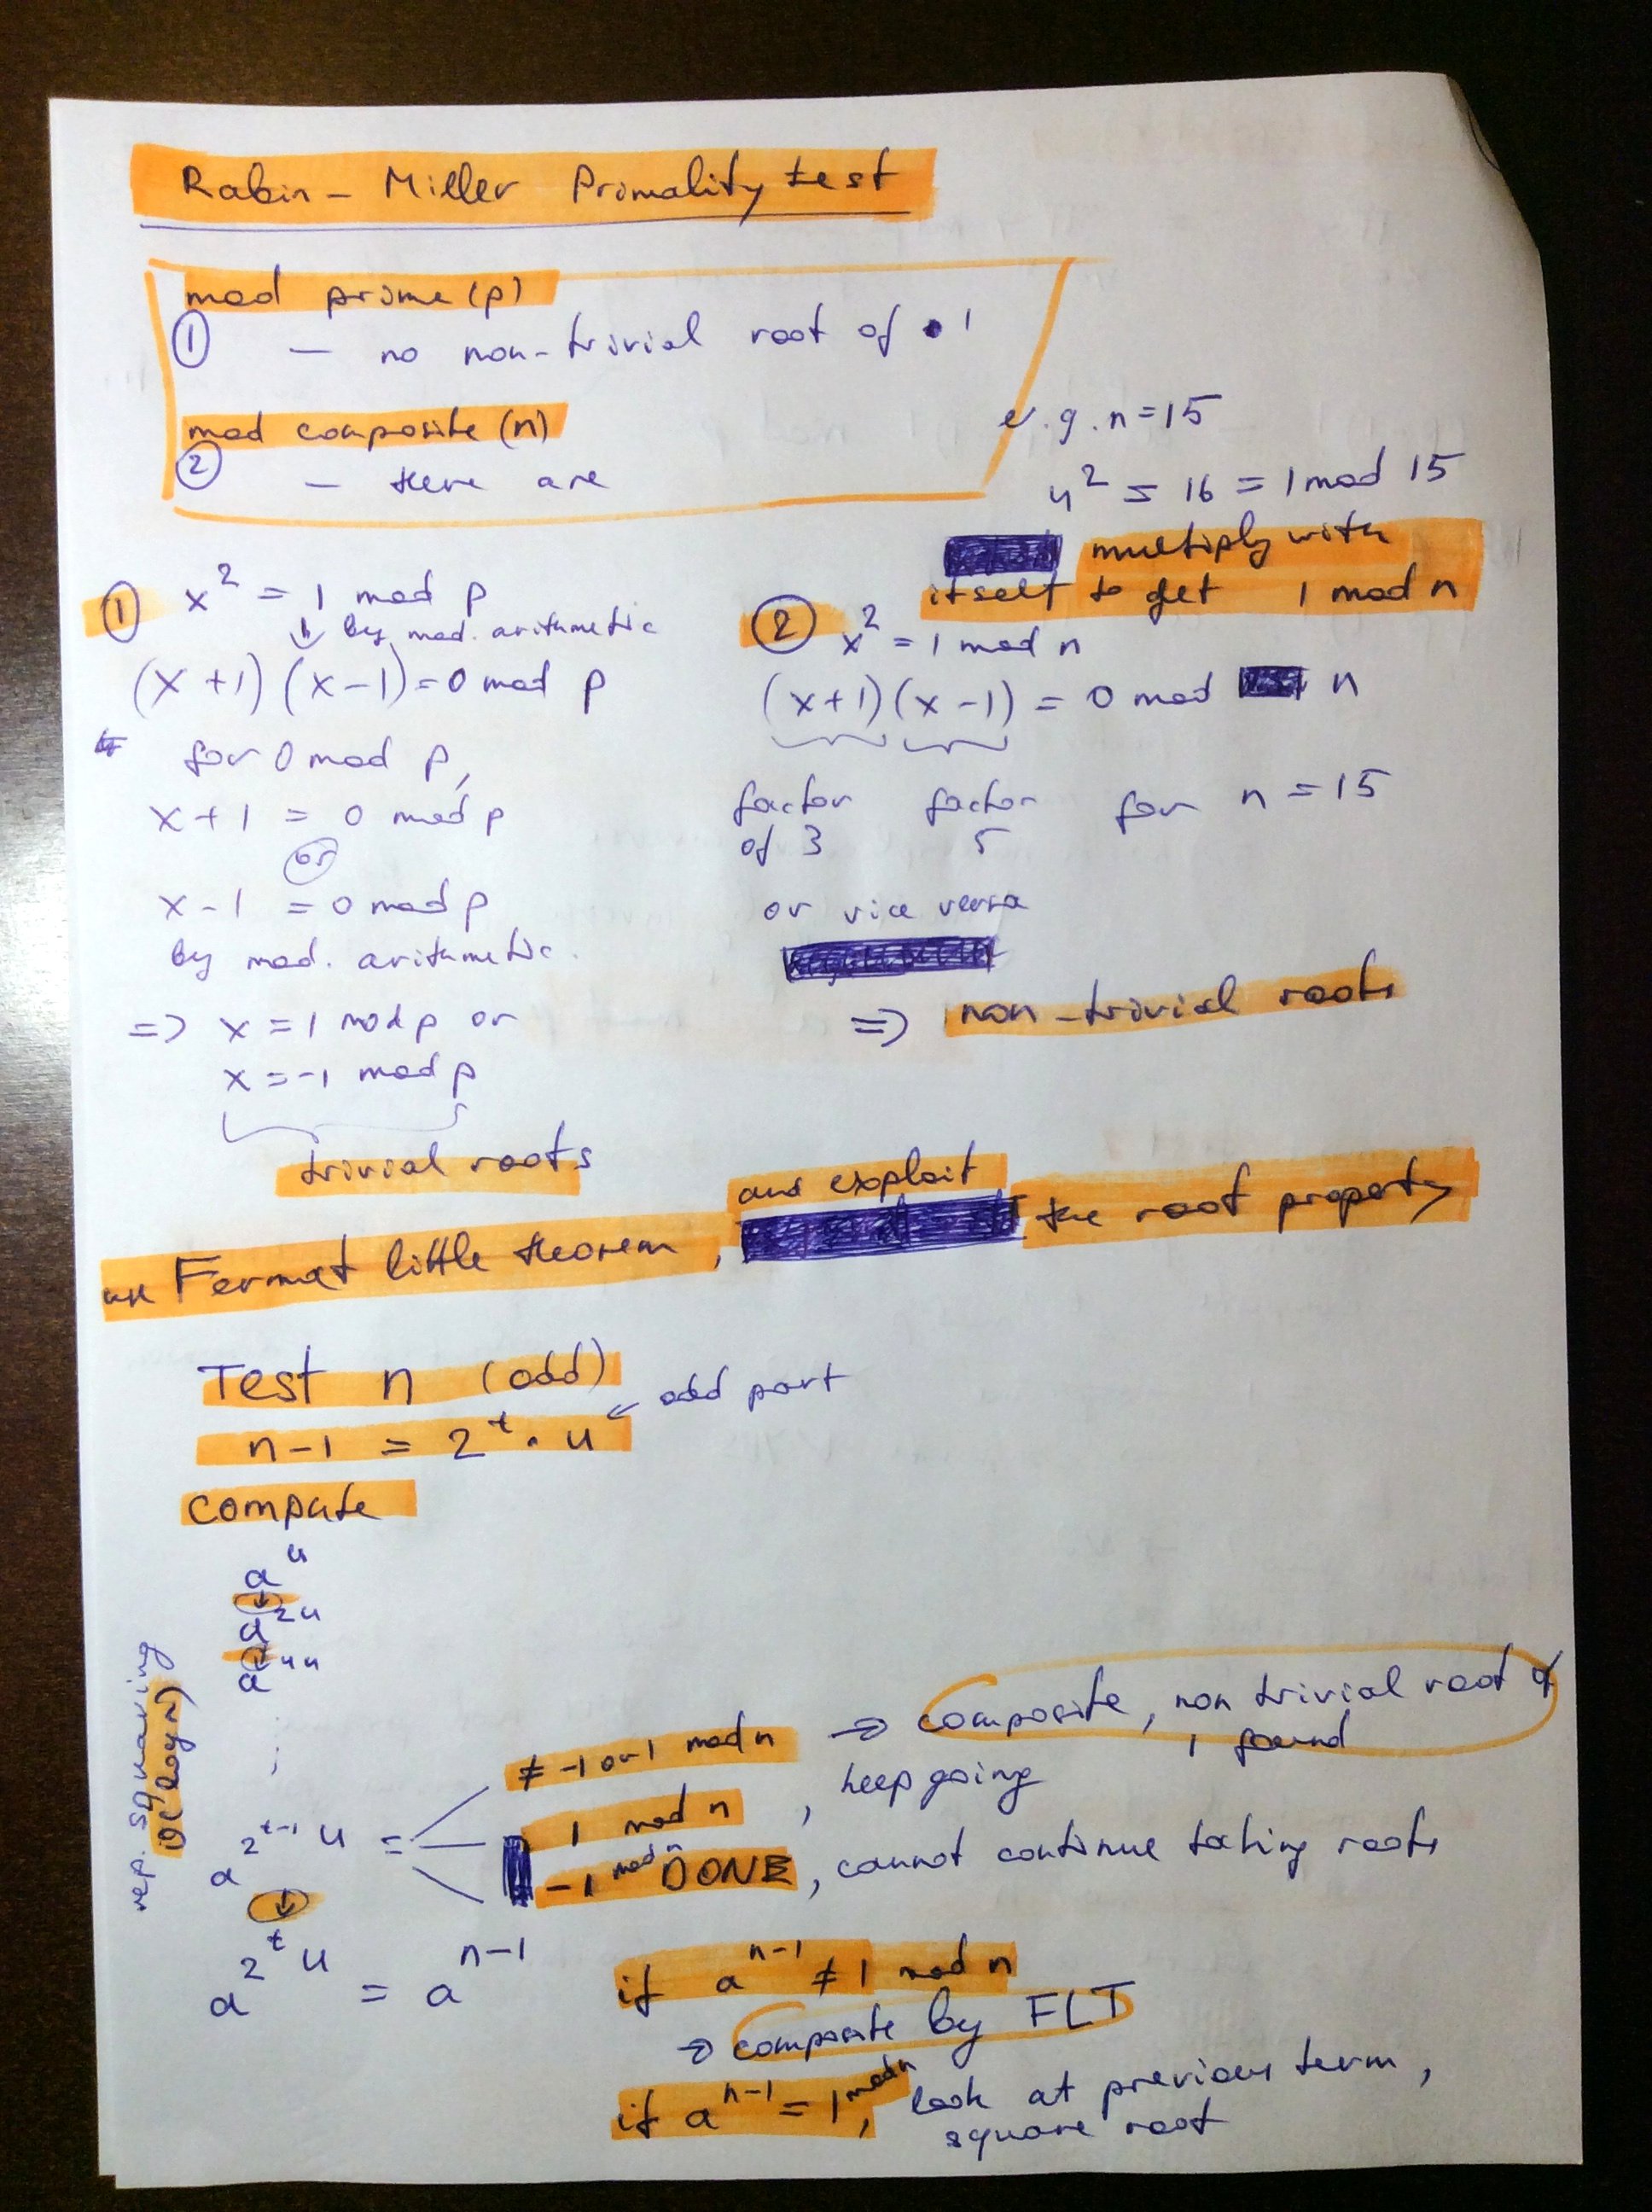 Rabin - Miller Primality test
mod prime (p)
① — no non-trivial root of 1
mod composite (n)
② — there are
e.g. n=15
4² = 16 = 1 mod 15
multiply with
itself to get 1 mod n
① x² = 1 mod p
↓ by mod. arithmetic
(x+1)(x-1)=0 mod p
for 0 mod p,
x+1 = 0 mod p
or
x-1 = 0 mod p
by mod. arithmetic.
=> x=1 mod p or
x=-1 mod p
trivial roots
② x² = 1 mod n
(x+1)(x-1) = 0 mod n
factor factor for n=15
of 3 5
or vice versa
=> non-trivial roots
and exploit
use Fermat little theorem, the root property
Test n (odd)
n-1 = 2ᵗ · u ← odd part
compute
aᵘ
↓
a²ᵘ
↓
a⁴ᵘ
rep. squaring
O(log n)
≠ -1 or 1 mod n → composite, non trivial root of
1 found
1 mod n, keep going
a^2^t-1 u =
-1 mod n DONE, cannot continue taking roots
↓
a^2^t u = a^n-1
if a^n-1 ≠ 1 mod n
→ composite by FLT
if a^n-1 = 1 mod n, look at previous term,
square root